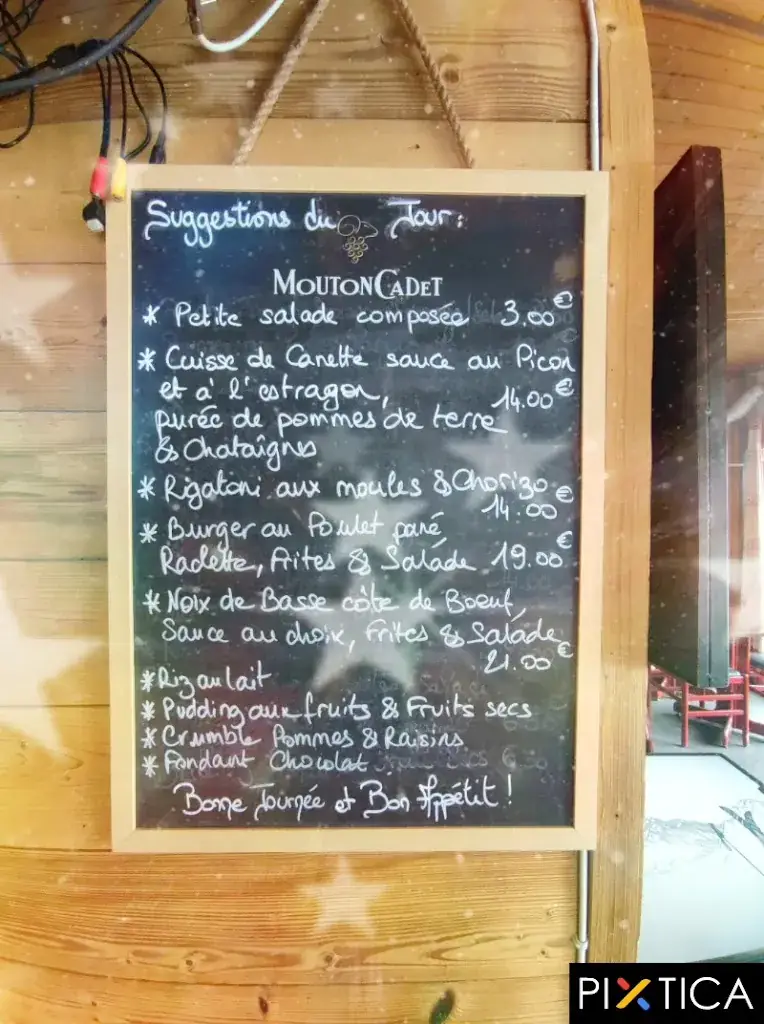 Suggestions du Jour :
MOUTON CADET
* Petite salade composée 3.00€
* Cuisse de Canette sauce au Picon
et à l'estragon, 14.00€
purée de pommes de terre
& Chataîgnes
* Rigatoni aux moules & Chorizo
14.00€
* Burger au Poulet pané,
Raclette, Frites & Salade 19.00€
* Noix de Basse côte de Boeuf,
Sauce au choix, Frites & Salade
21.00€
* Riz au lait
* Pudding aux fruits & Fruits secs
* Crumble Pommes & Raisins
* Fondant Chocolat
Bonne Journée et Bon Appétit !
PIXTICA